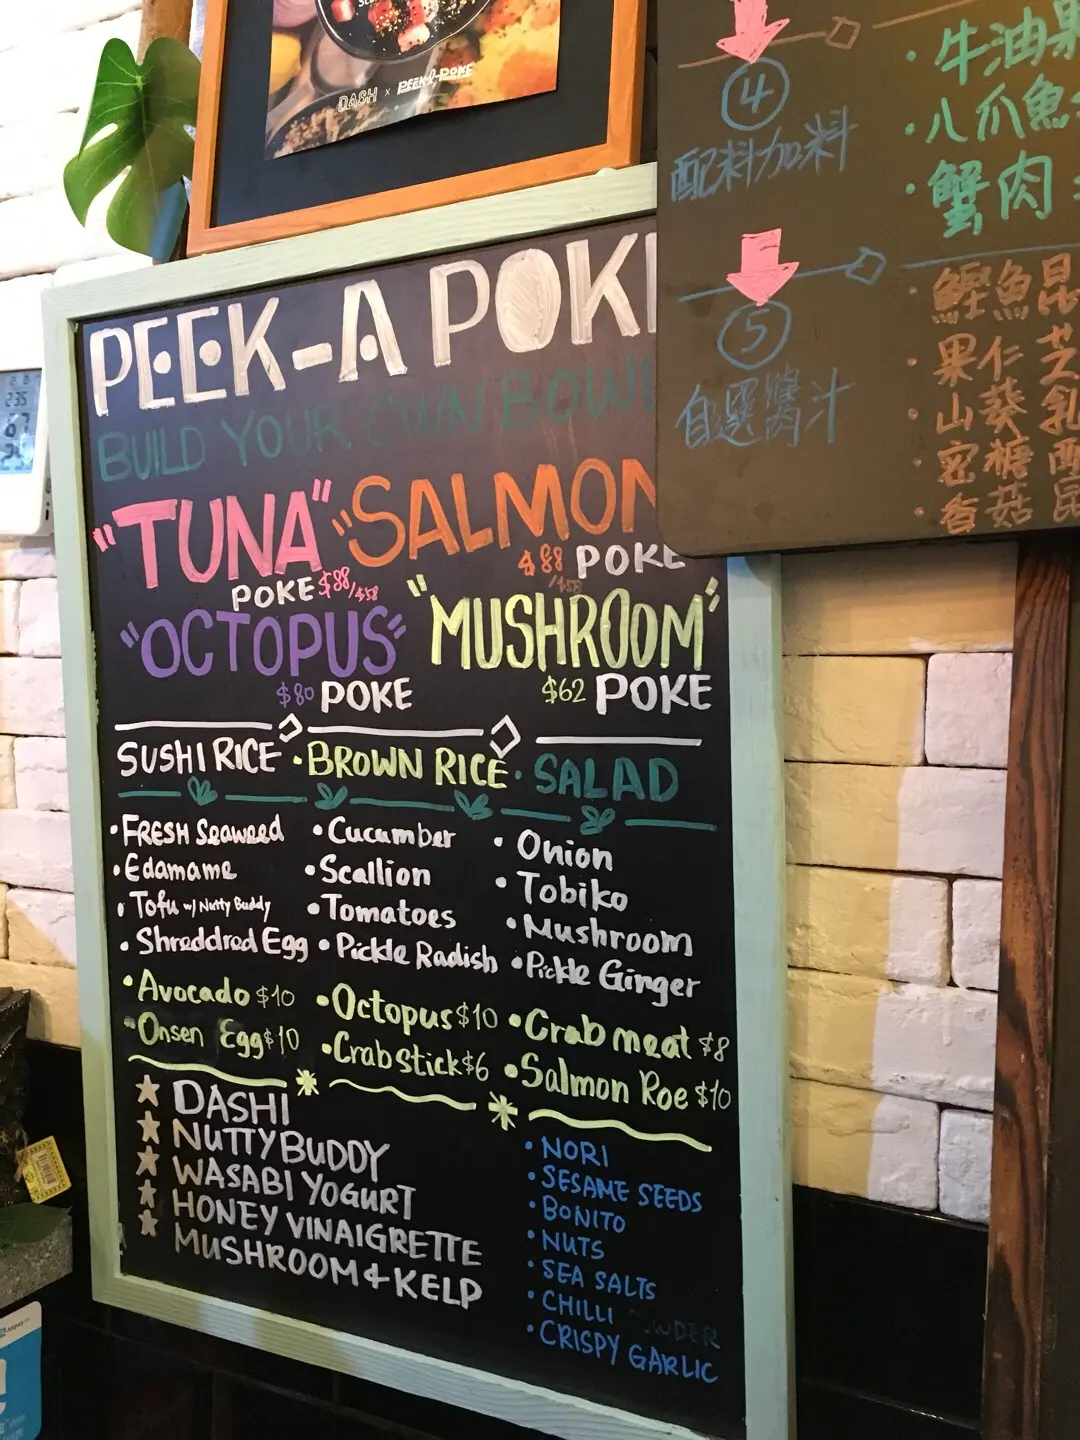 DASH x PEEK-A-POKE
PEEK-A POK
BUILD YOUR OWN BOWL
"TUNA"
POKE $88/$58
"SALMON
$88 POKE
/$58
"OCTOPUS"
$80 POKE
"MUSHROOM"
$62 POKE
SUSHI RICE · BROWN RICE · SALAD
· FRESH Seaweed
· Edamame
· Tofu w/ Nutty Buddy
· Shreddred Egg
· Cucumber
· Scallion
· Tomatoes
· Pickle Radish
· Onion
· Tobiko
· Mushroom
· Pickle Ginger
· Avocado $10
· Onsen Egg $10
· Octopus $10
· Crab stick $6
· Crab meat $8
· Salmon Roe $10
★ DASHI
★ NUTTY BUDDY
★ WASABI YOGURT
★ HONEY VINAIGRETTE
★ MUSHROOM & KELP
· NORI
· SESAME SEEDS
· BONITO
· NUTS
· SEA SALTS
· CHILLI POWDER
· CRISPY GARLIC
④
配料加料
· 牛油果
· 八爪魚
· 蟹肉
⑤
自選醬汁
· 鰹魚昆
· 果仁芝
· 山葵乳
· 密糖
· 香菇昆